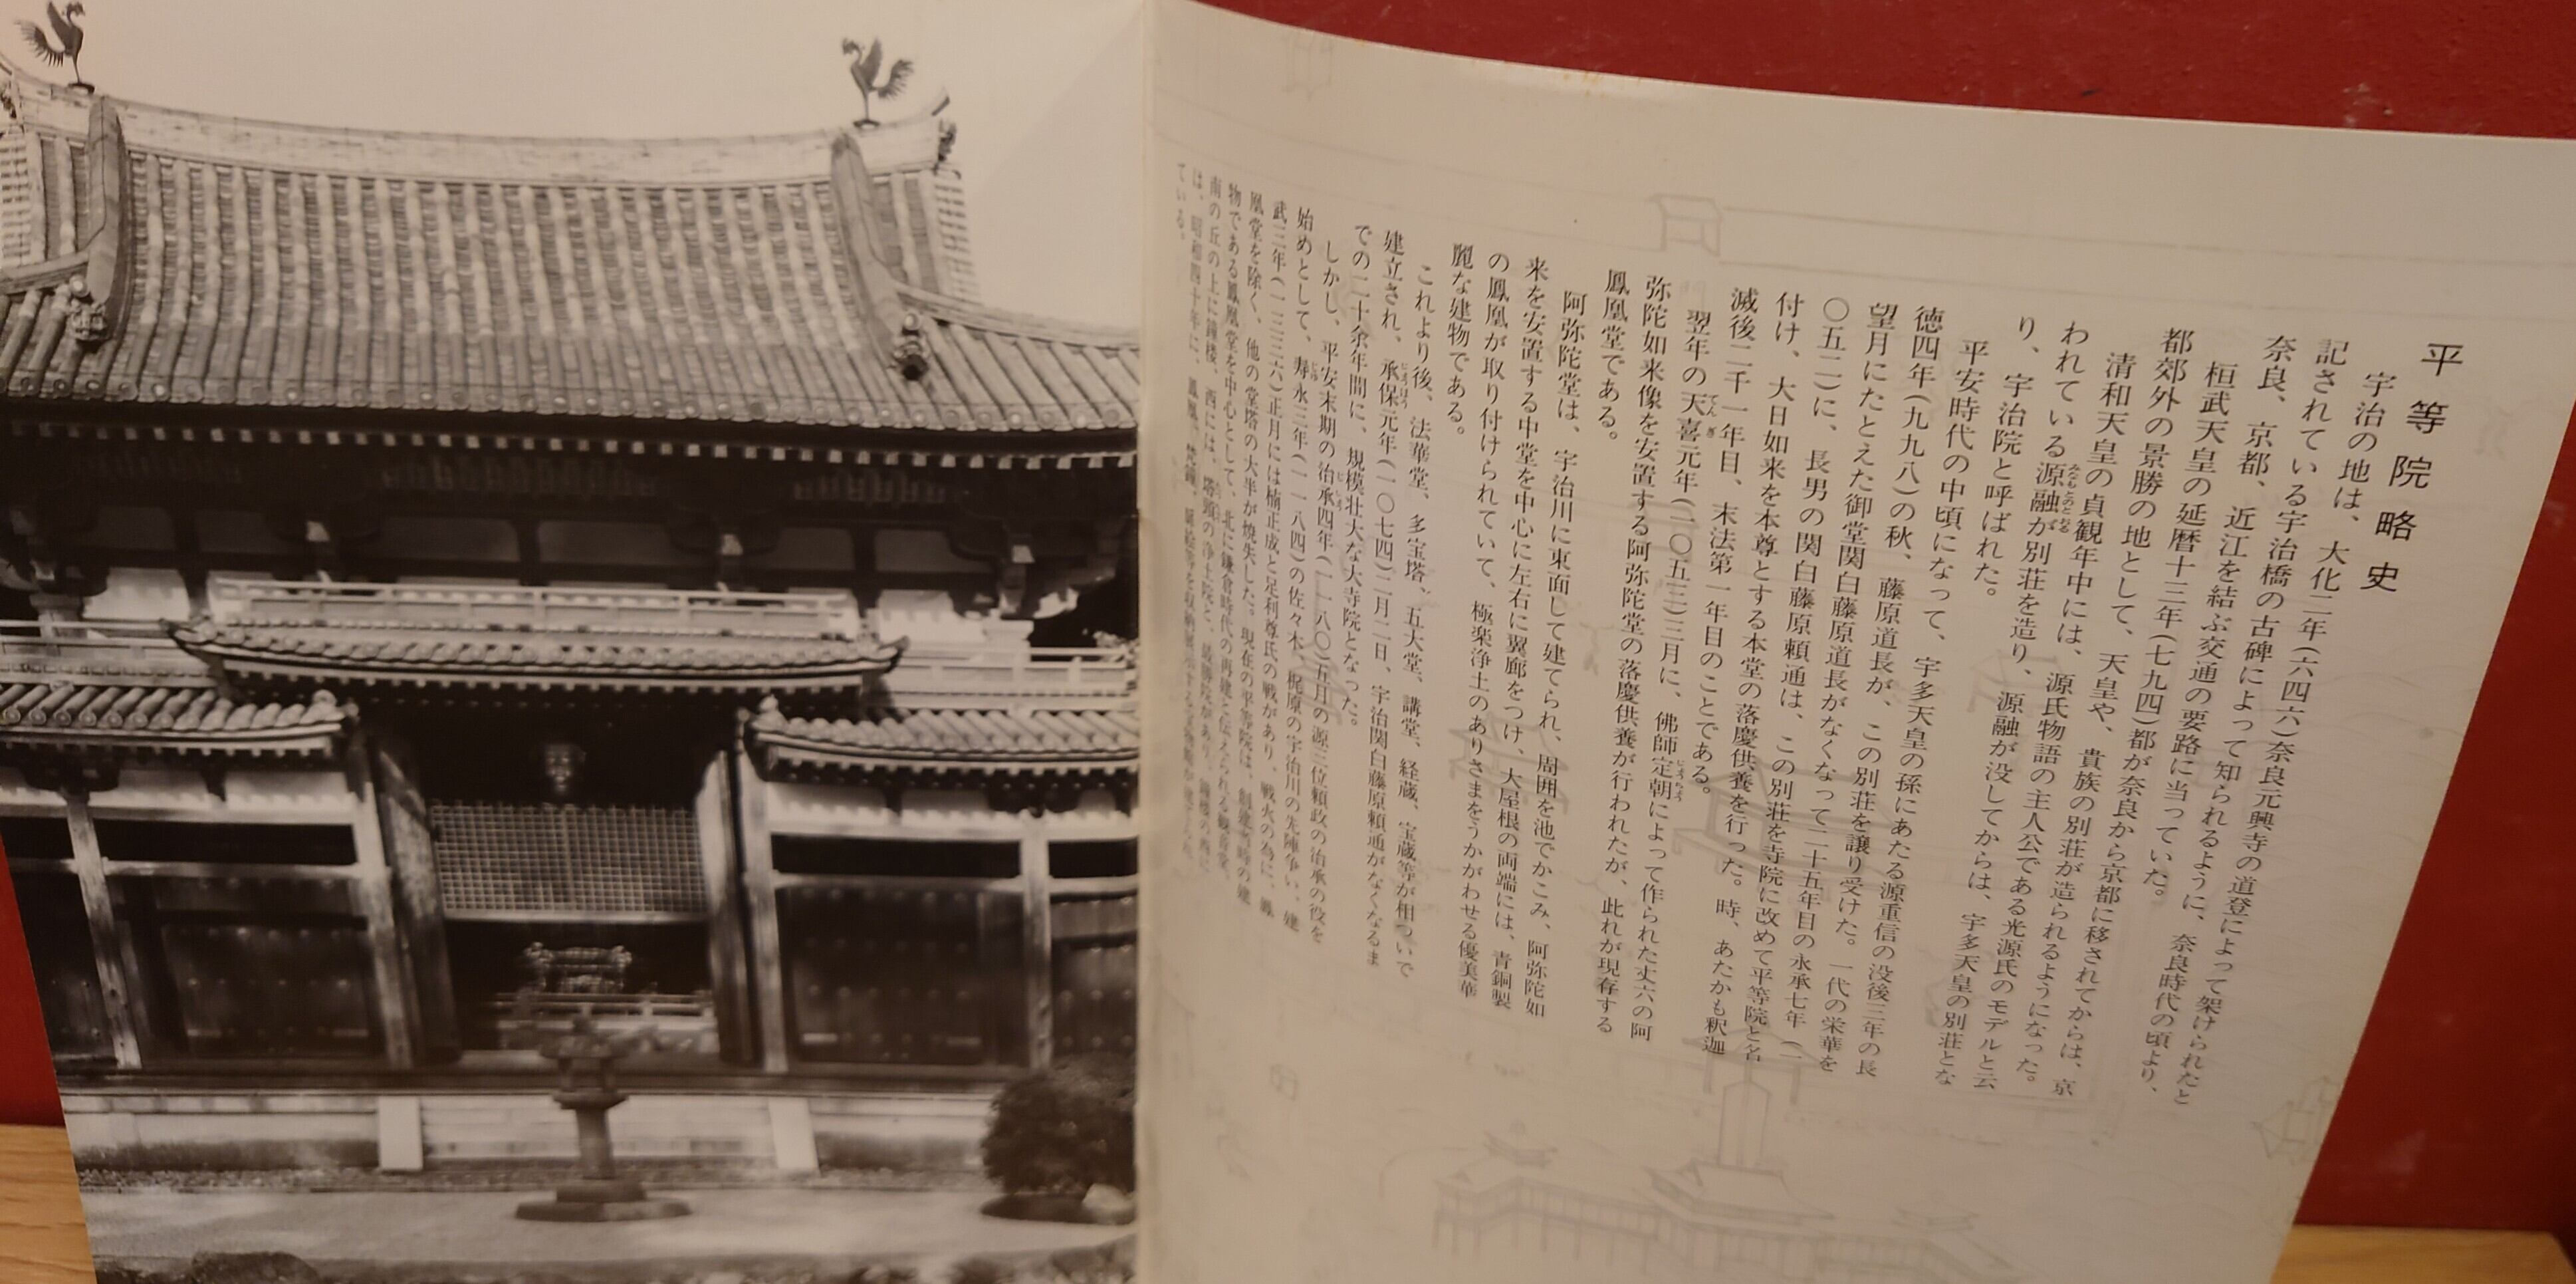 平等院略史
宇治の地は、大化二年(六四六)奈良元興寺の道登によって架けられたと
記されている宇治橋の古碑によって知られるように、奈良時代の頃より、
奈良、京都、近江を結ぶ交通の要路に当っていた。
桓武天皇の延暦十三年(七九四)都が奈良から京都に移されてからは、京
都郊外の景勝の地として、天皇や、貴族の別荘が造られるようになった。
清和天皇の貞観年中には、源氏物語の主人公である光源氏のモデルと云
われている源融が別荘を造り、源融が没してからは、宇多天皇の別荘とな
みなもとのとおる
り、宇治院と呼ばれた。
平安時代の中頃になって、宇多天皇の孫にあたる源重信の没後三年の長
徳四年(九九八)の秋、藤原道長が、この別荘を譲り受けた。一代の栄華を
望月にたとえた御堂関白藤原道長がなくなって二十五年目の永承七年(一
〇五二)に、長男の関白藤原頼通は、この別荘を寺院に改めて平等院と名
付け、大日如来を本尊とする本堂の落慶供養を行った。時、あたかも釈迦
滅後二千一年目、末法第一年目のことである。
翌年の天喜元年(一〇五三)三月に、佛師定朝によって作られた丈六の阿
てんぎ
じょうちょう
弥陀如来像を安置する阿弥陀堂の落慶供養が行われたが、此れが現存する
鳳凰堂である。
阿弥陀堂は、宇治川に東面して建てられ、周囲を池でかこみ、阿弥陀如
来を安置する中堂を中心に左右に翼廊をつけ、大屋根の両端には、青銅製
の鳳凰が取り付けられていて、極楽浄土のありさまをうかがわせる優美華
麗な建物である。
これより後、法華堂、多宝塔、五大堂、講堂、経蔵、宝蔵等が相ついで
建立され、承保元年(一〇七四)二月二日、宇治関白藤原頼通がなくなるま
じょうほう
での二十余年間に、規模壮大な大寺院となった。
しかし、平安末期の治承四年(一一八〇)五月の源三位頼政の治承の役を
じしょう
始めとして、寿永三年(一一八四)の佐々木、梶原の宇治川の先陣争い、建
じゅ
武三年(一三三六)正月には楠正成と足利尊氏の戦があり、戦火の為に、鳳
凰堂を除く、他の堂塔の大半が焼失した。現在の平等院は、創建当時の建
物である鳳凰堂を中心として、北に鎌倉時代の再建と伝えられる観音堂、
南の丘の上に鐘楼、西には、塔頭の浄土院と、最勝院があり、鐘楼の西に
は、昭和四十年に、鳳凰、梵鐘、扉絵等を収納展示する宝物館が建てられ
ている。